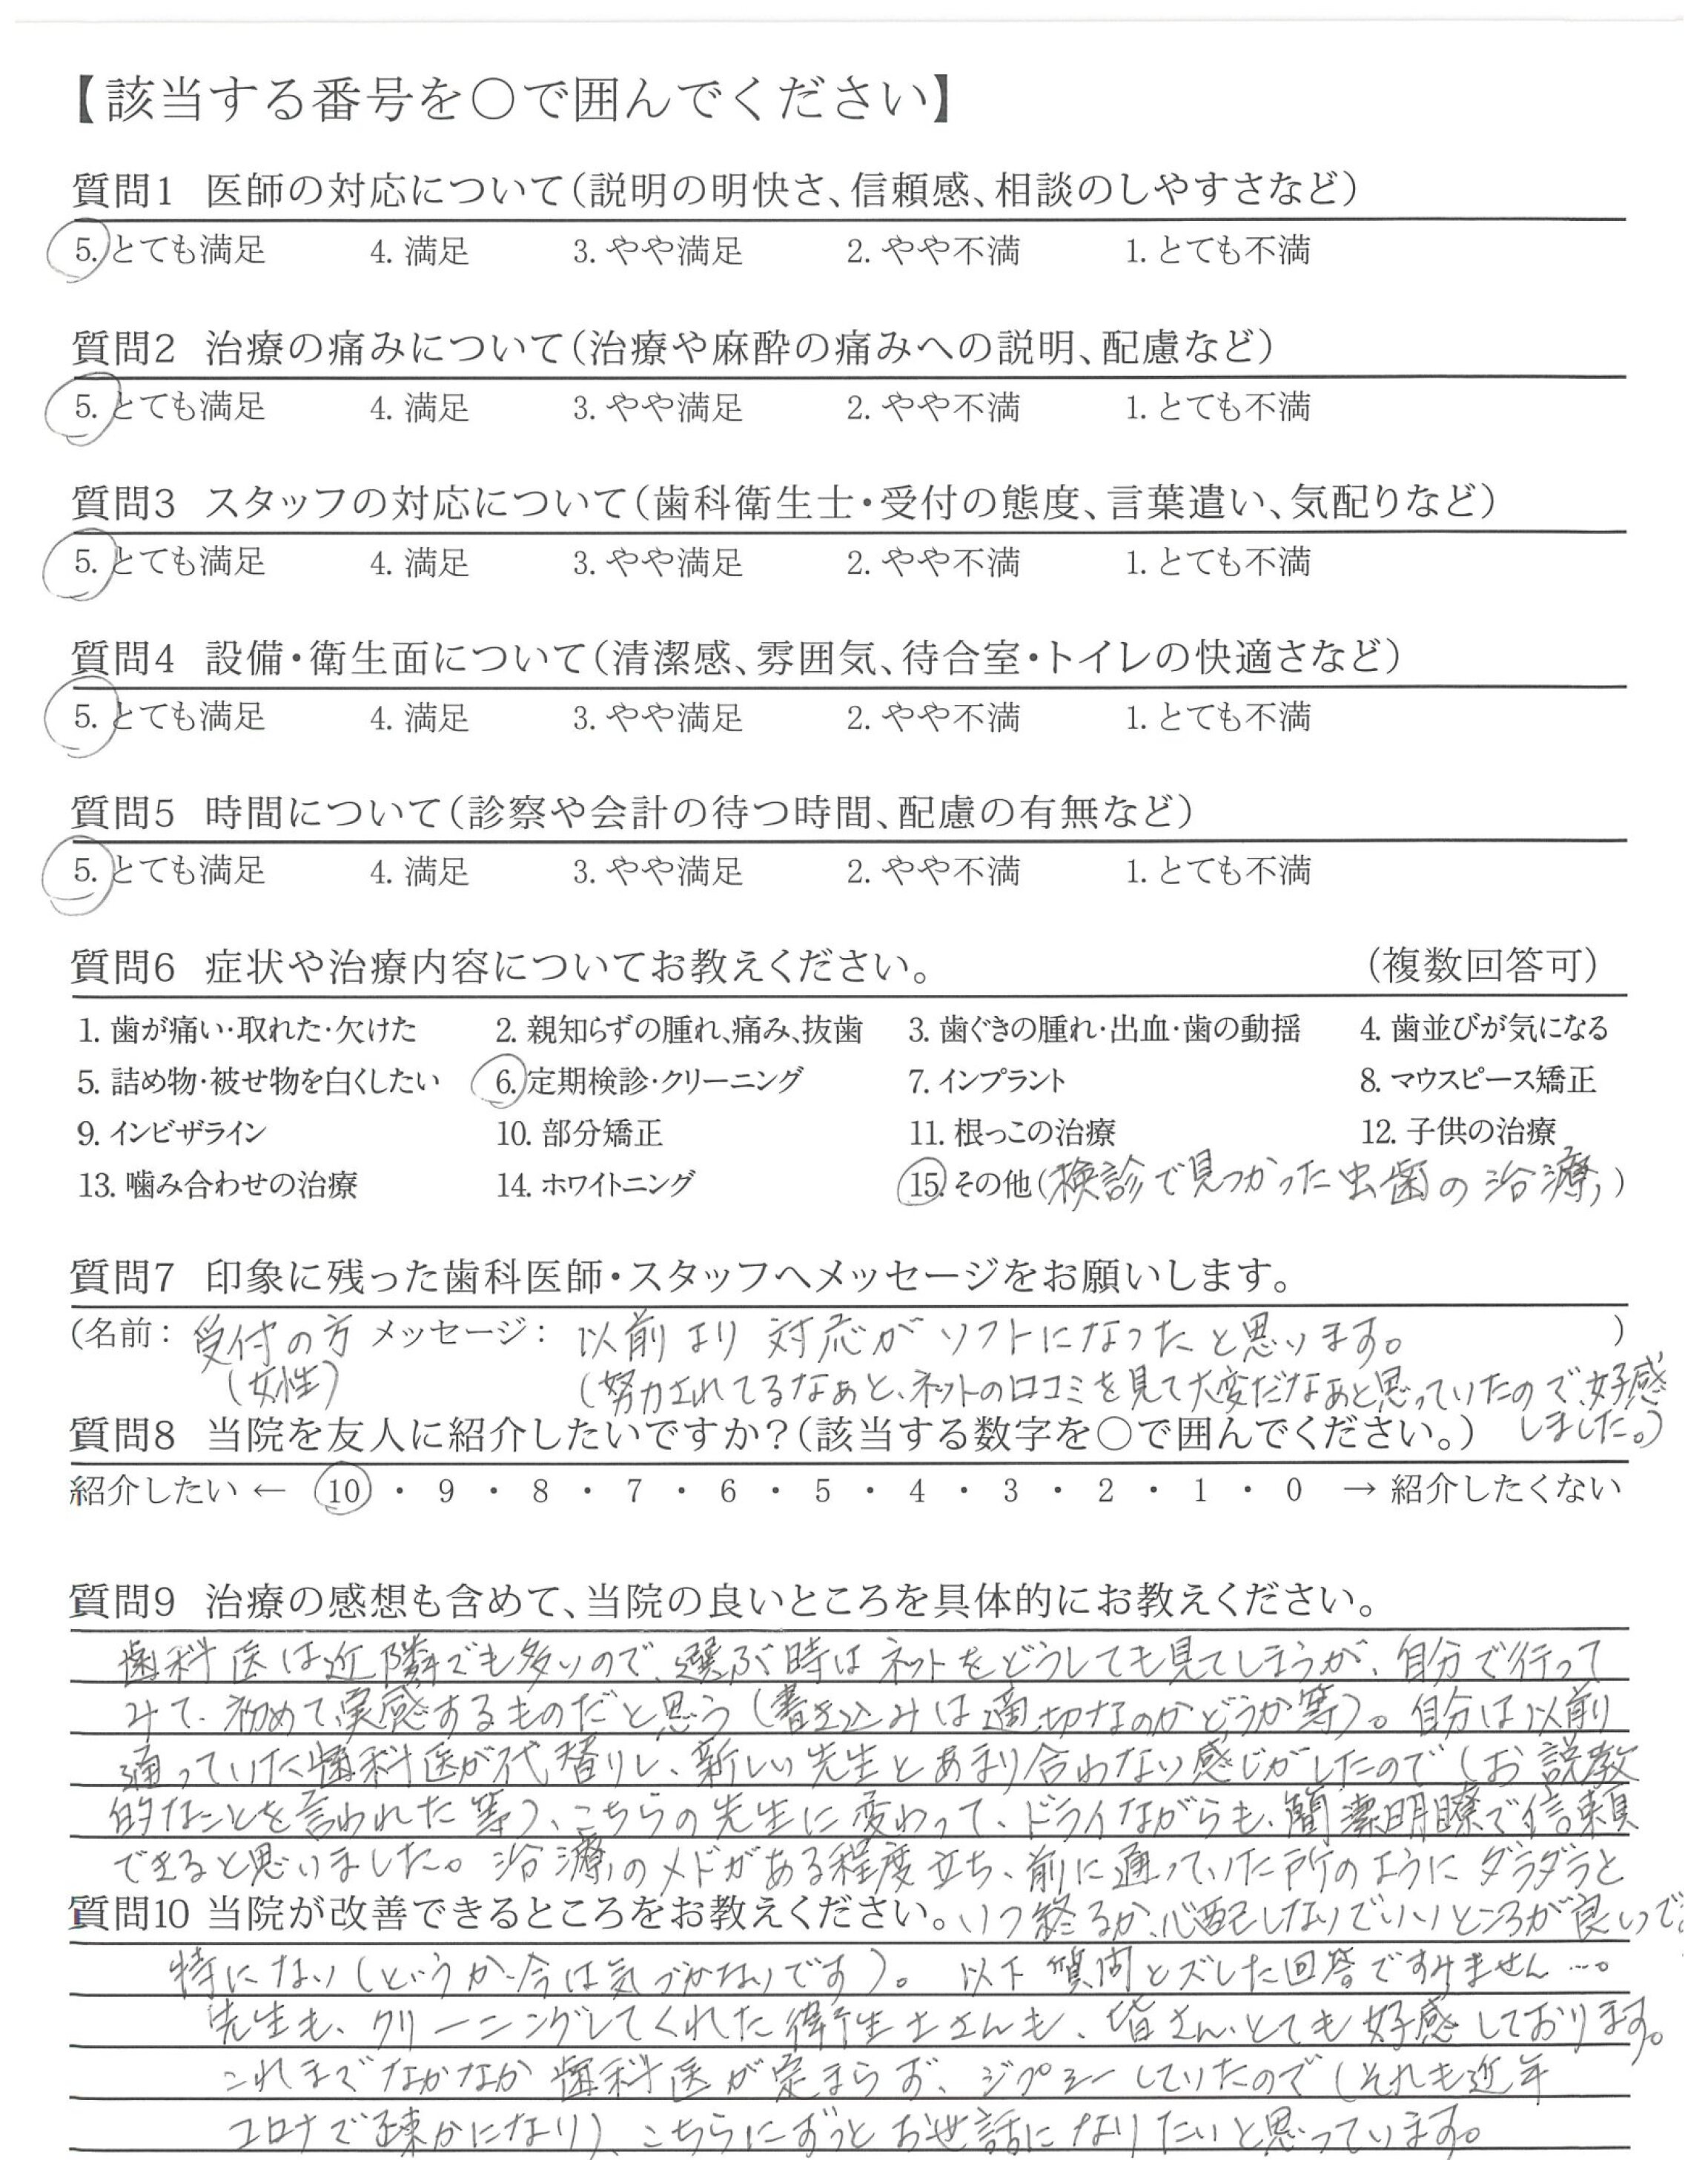 【該当する番号を○で囲んでください】
質問1 医師の対応について(説明の明快さ、信頼感、相談のしやすさなど)
5. とても満足 4. 満足 3. やや満足 2. やや不満 1. とても不満
質問2 治療の痛みについて(治療や麻酔の痛みへの説明、配慮など)
5. とても満足 4. 満足 3. やや満足 2. やや不満 1. とても不満
質問3 スタッフの対応について(歯科衛生士・受付の態度、言葉遣い、気配りなど)
5. とても満足 4. 満足 3. やや満足 2. やや不満 1. とても不満
質問4 設備・衛生面について(清潔感、雰囲気、待合室・トイレの快適さなど)
5. とても満足 4. 満足 3. やや満足 2. やや不満 1. とても不満
質問5 時間について(診察や会計の待つ時間、配慮の有無など)
5. とても満足 4. 満足 3. やや満足 2. やや不満 1. とても不満
質問6 症状や治療内容についてお教えください。 (複数回答可)
1. 歯が痛い・取れた・欠けた 2. 親知らずの腫れ、痛み、抜歯 3. 歯ぐきの腫れ・出血・歯の動揺 4. 歯並びが気になる
5. 詰め物・被せ物を白くしたい 6. 定期検診・クリーニング 7. インプラント 8. マウスピース矯正
9. インビザライン 10. 部分矯正 11. 根っこの治療 12. 子供の治療
13. 噛み合わせの治療 14. ホワイトニング 15. その他(検診で見つかった虫歯の治療)
質問7 印象に残った歯科医師・スタッフへメッセージをお願いします。
(名前: 受付の方 メッセージ: 以前より対応がソフトになったと思います。 )
(女性) (努力されてるなぁと、ネットの口コミを見て大変だなぁと思っていたので、好感
質問8 当院を友人に紹介したいですか?(該当する数字を○で囲んでください。) しました。)
紹介したい ← 10 ・ 9 ・ 8 ・ 7 ・ 6 ・ 5 ・ 4 ・ 3 ・ 2 ・ 1 ・ 0 → 紹介したくない
質問9 治療の感想も含めて、当院の良いところを具体的にお教えください。
歯科医は近隣でも多いので、選ぶ時はネットをどうしても見てしまうが、自分で行って
みて、初めて実感するものだと思う(書き込みは適切なのかどうか等)。自分は以前
通っていた歯科医が代替りし、新しい先生とあまり合わない感じがしたので(お説教
的なことを言われた等)、こちらの先生に変わって、ドライながらも、簡潔明瞭で信頼
できると思いました。治療のメドがある程度立ち、前に通っていた所のようにダラダラと
質問10 当院が改善できるところをお教えください。いつ終るか、心配しないでいいところが良いで
特にない(というか今は気づかないです)。 以下質問とズレた回答ですみません…。
先生も、クリーニングしてくれた衛生士さんも、皆さん、とても好感しております。
これまでなかなか歯科医が定まらず、ジプシーしていたので(それも近年
コロナで疎かになり)、こちらにずっとお世話になりたいと思っています。